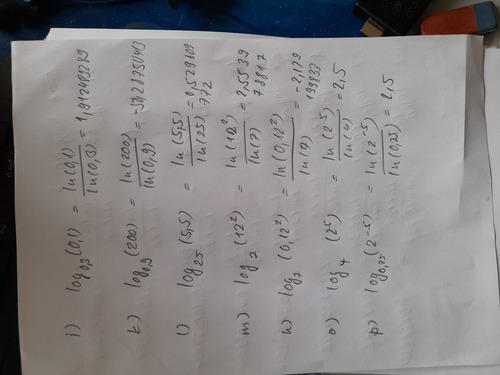 j) log0,3(0,1) = ln(0,1) / ln(0,3) = 1,912489289
k) log0,9(200) = ln(200) / ln(0,9)
l) log25(5,5) = ln(5,5) / ln(25) = 0,529609
772
m) log7(12²) = ln(12²) / ln(7) = 2,5539
78817
n) log7(0,12²) = ln(0,12²) / ln(7) = -2,179
199832
o) log4(2⁵) = ln(2⁻⁵) / ln(4) = 2,5
p) log0,25(2⁻⁵) = ln(2⁻⁵) / ln(0,25) = 2,5